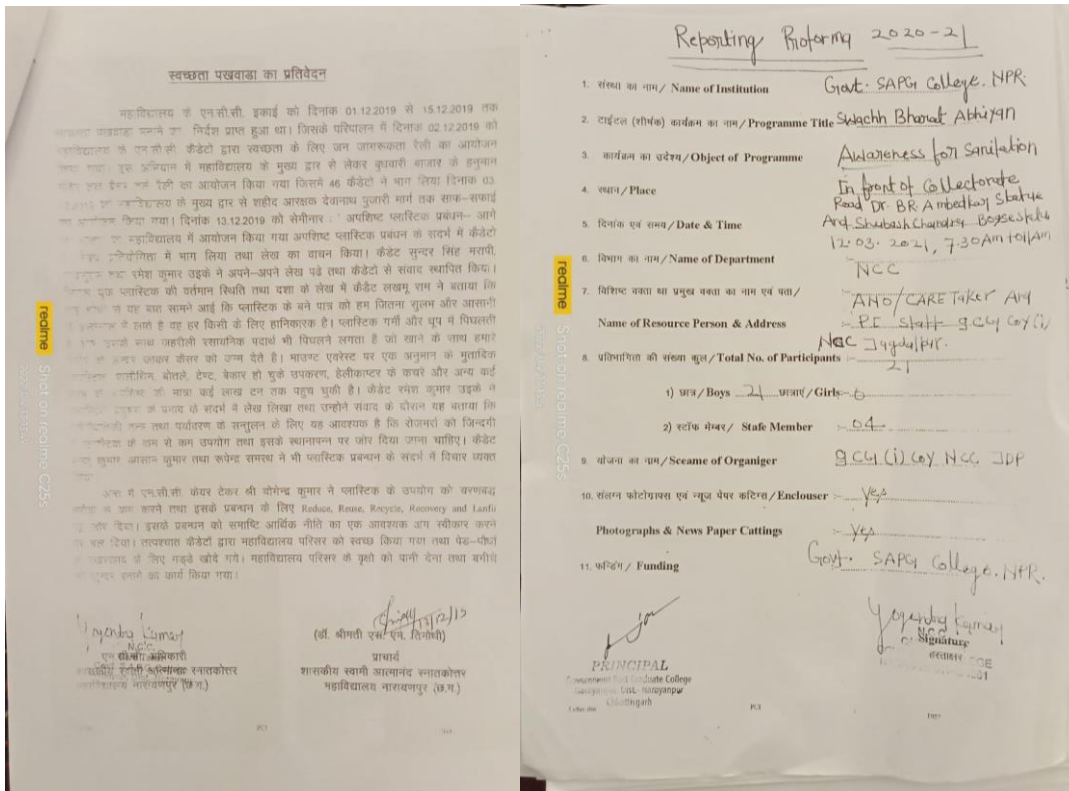 स्वच्छता पखवाडा का प्रतिवेदन
महाविद्यालय के एन.सी.सी. इकाई को दिनांक 01.12.2019 से 15.12.2019 तक
निर्देश प्राप्त हुआ था। जिसके परिपालन में दिनांक 02.12.2019 को
के एन.सी.सी. कैडेटो द्वारा स्वच्छता के लिए जन जागरूकता रैली का आयोजन
अभियान में महाविद्यालय के मुख्य द्वार से लेकर बुधवारी बाजार के हनुमान
रैली का आयोजन किया गया जिसमे 46 कैडेटो ने भाग लिया दिनांक 03
के मुख्य द्वार से शहीद आरक्षक देवानाथ पुजारी मार्ग तक साफ-सफाई
किया गया। दिनांक 13.12.2019 को सेमीनार : अपशिष्ट प्लास्टिक प्रबंधन- आगे
महाविद्यालय में आयोजन किया गया अपशिष्ट प्लास्टिक प्रबंधन के संदर्भ में कैडेटो
में भाग लिया तथा लेख का वाचन किया। कैडेट सुन्दर सिंह मरापी,
रमेश कुमार उइके ने अपने-अपने लेख पढे तथा कैडेटो से संवाद स्थापित किया।
प्लास्टिक की वर्तमान स्थिति तथा दशा के लेख में कैडेट लखमू राम ने बताया कि
से यह बात सामने आई कि प्लास्टिक के बने पात्र को हम जितना सुलभ और आसानी
में लाते है वह हर किसी के लिए हानिकारक है। प्लास्टिक गर्मी और धूप में पिघलती
साथ जहरीली रसायनिक पदार्थ भी पिघलने लगता है जो खाने के साथ हमारे
जाकर कैंसर को जन्म देते है। माउण्ट एवरेस्ट पर एक अनुमान के मुताबिक
बोतले, टेण्ट, बेकार हो चुके उपकरण, हेलीकाप्टर के कचरे और अन्य कई
की मात्रा कई लाख टन तक पहुच चुकी है। कैडेट रमेश कुमार उइके ने
के प्रभाव के संदर्भ में लेख लिखा तथा उन्होने संवाद के दौरान यह बताया कि
तथा पर्यावरण के सन्तुलन के लिए यह आवश्यक है कि रोजमर्रा की जिन्दगी
के कम से कम उपयोग तथा इसके स्थानापन्न पर जोर दिया जाना चाहिए। कैडेट
कुमार तथा रूपेन्द्र समरथ ने भी प्लास्टिक प्रबन्धन के संदर्भ में विचार व्यक्त
अंत में एन.सी.सी. केयर टेकर श्री योगेन्द्र कुमार ने प्लास्टिक के उपयोग को चरणबद्ध
करने तथा इसके प्रबन्धन के लिए Reduce, Reuse, Recycle, Recovery and Lanfil
दिया। इसके प्रबन्धन को समाष्टि आर्थिक नीति का एक आवश्यक अंग स्वीकार करने
बल दिया। तत्पश्चात कैडेटो द्वारा महाविद्यालय परिसर को स्वच्छ किया गया तथा पेड-पौधों
के लिए गड्डे खोदे गये। महाविद्यालय परिसर के वृक्षो को पानी देना तथा बगीचे
का कार्य किया गया।
Yogendra Kumar
12/12/19
एन.सी.सी. अधिकारी
शासकीय स्वामी आत्मानंद स्नातकोत्तर
महाविद्यालय नारायणपुर (छ.ग.)
प्राचार्य
शासकीय स्वामी आत्मानंद स्नातकोत्तर
महाविद्यालय नारायणपुर (छ.ग.)
realme
Shot on realme C25s
Reporting Proforma 2020-21
1. संस्था का नाम/ Name of Institution Govt. SAPG College. NPR.
2. टाईटल (शीर्षक) कार्यक्रम का नाम/Programme Title Swachh Bharat Abhiyan
3. कार्यक्रम का उदेश्य/Object of Programme Awareness for Sanitation
4. स्थान/Place In front of Collectorate
Road Dr. BR Ambedkar Statue
5. दिनांक एवं समय/Date & Time And Shubash Chandra
12.03.2021, 7.30Am to 11Am
6. विभाग का नाम/Name of Department NCC
7. विशिष्ट वक्ता या प्रमुख वक्ता का नाम एवं पता/ ANO/CARE Taker And
Name of Resource Person & Address PI Staff 9CG Coy (i)
NCC Jagdalpur.
8. प्रतिभागिता की संख्या कुल/Total No. of Participants 21
1) छात्र/Boys 21 छात्राएं/Girls 0
2) स्टॉफ मेम्बर/ Stafe Member 04
9. योजना का नाम/Sceame of Organiger 9CG (i) Coy NCC JDP
10. संलग्न फोटोग्राफ्स एवं न्यूज पेपर कटिंग्स/Enclouser :- Yes
Photographs & News Paper Cattings :- Yes
11. फन्डिंग/ Funding Govt. SAPG College. NPR.
PRINCIPAL
Government Post Graduate College
Narayanpur Dist.- Narayanpur
Chhattisgarh
Yogendra Kumar
Signature
हस्ताक्षर
realme
Shot on realme C25s